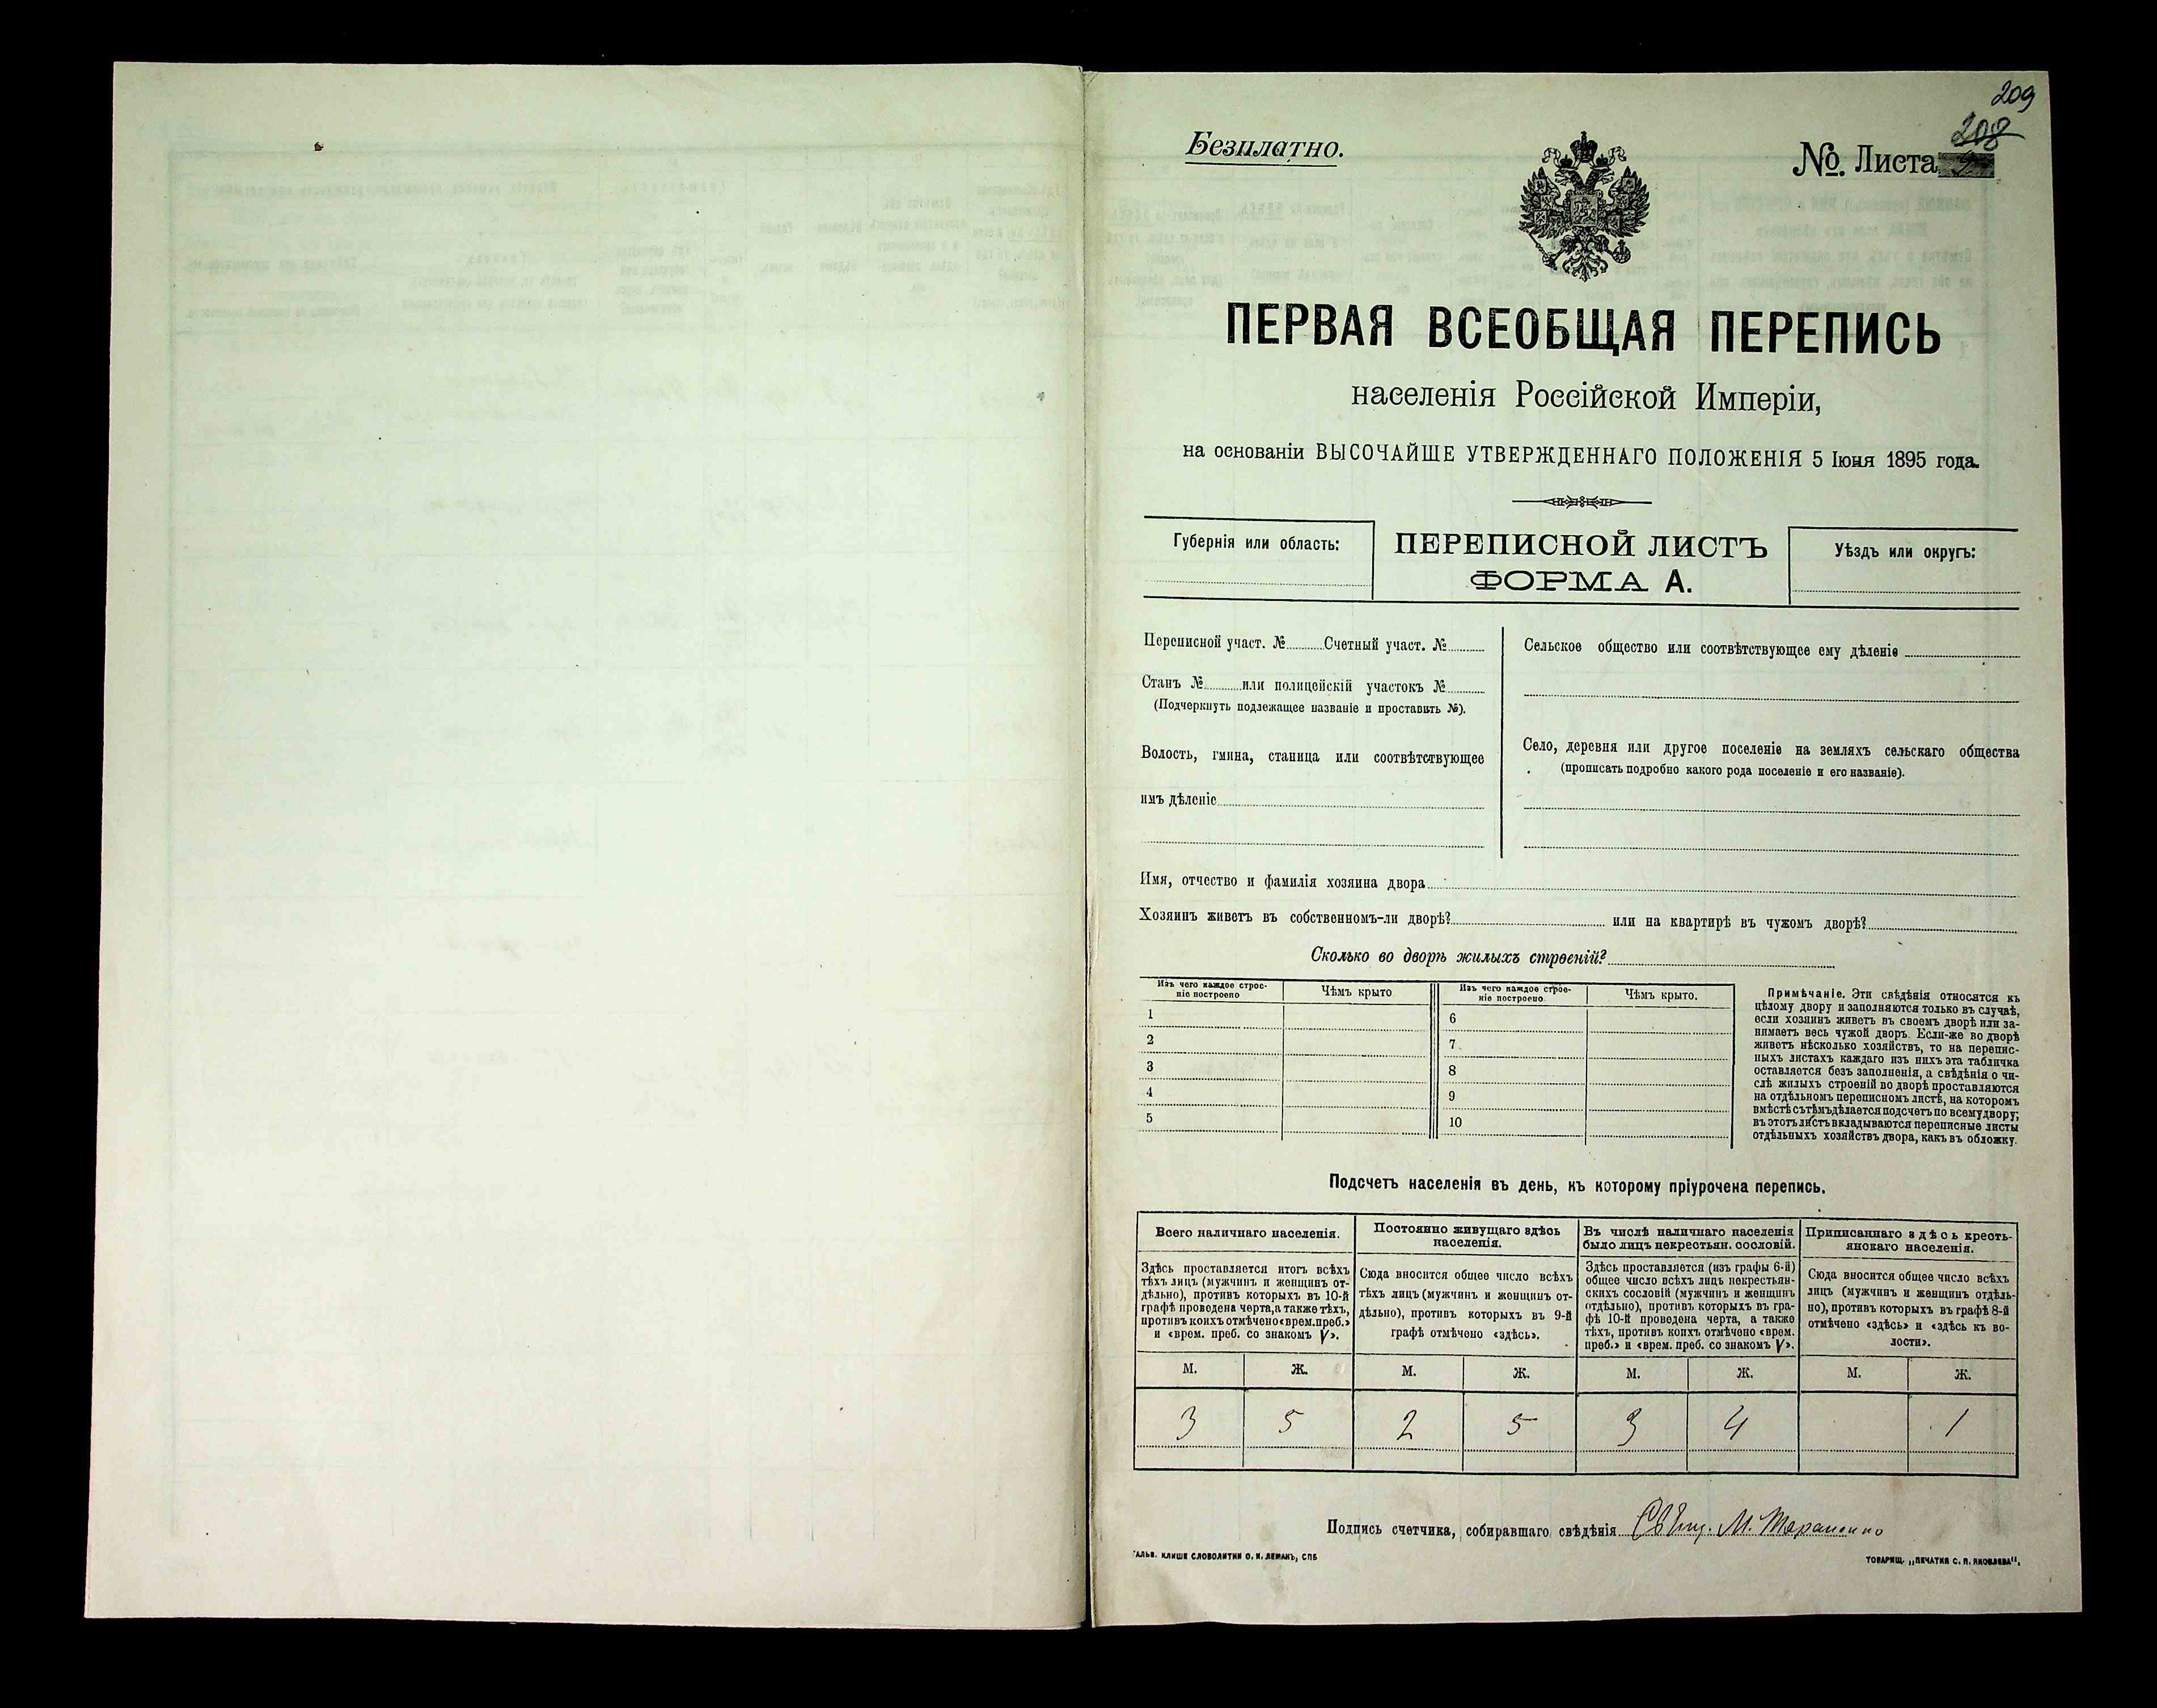 209
208
Безплатно.
№. Листа
ПЕРВАЯ ВСЕОБЩАЯ ПЕРЕПИСЬ
населенія Россійской Имперіи,
на основаніи ВЫСОЧАЙШЕ УТВЕРЖДЕННАГО ПОЛОЖЕНІЯ 5 Іюня 1895 года.
Губернія или область:
ПЕРЕПИСНОЙ ЛИСТЪ
ФОРМА А.
Уѣздъ или округъ:
Переписной участ. № Счетный участ. №
Станъ № или полицейскій участокъ №
(Подчеркнуть подлежащее названіе и проставить №).
Волость, гмина, станица или соотвѣтствующее
имъ дѣленіе
Сельское общество или соотвѣтствующее ему дѣленіе
Село, деревня или другое поселеніе на земляхъ сельскаго общества
(прописать подробно какого рода поселеніе и его названіе).
Имя, отчество и фамилія хозяина двора
Хозяинъ живетъ въ собственномъ-ли дворѣ? или на квартирѣ въ чужомъ дворѣ?
Сколько во дворѣ жилыхъ строеній?
Изъ чего каждое строе-
ніе построено
Чѣмъ крыто
Изъ чего каждое строе-
ніе построено
Чѣмъ крыто.
1
2
3
4
5
6
7
8
9
10
Примѣчаніе. Эти свѣдѣнія относятся къ
цѣлому двору и заполняются только въ случаѣ,
если хозяинъ живетъ въ своемъ дворѣ или за-
нимаетъ весь чужой дворъ. Если-же во дворѣ
живетъ нѣсколько хозяйствъ, то на перепис-
ныхъ листахъ каждаго изъ нихъ эта табличка
оставляется безъ заполненія, а свѣдѣнія о чи-
слѣ жилыхъ строеній во дворѣ проставляются
на отдѣльномъ переписномъ листѣ, на которомъ
вмѣстѣ съ тѣмъ дѣлается подсчетъ по всему двору;
въ этотъ листъ вкладываются переписные листы
отдѣльныхъ хозяйствъ двора, какъ въ обложку.
Подсчетъ населенія въ день, къ которому пріурочена перепись.
Всего наличнаго населенія.
Здѣсь проставляется итогъ всѣхъ
тѣхъ лицъ (мужчинъ и женщинъ от-
дѣльно), противъ которыхъ въ 10-й
графѣ проведена черта, а также тѣхъ,
противъ коихъ отмѣчено «врем. преб.»
и «врем. преб. со знакомъ V».
Постоянно живущаго здѣсь
населенія.
Сюда вносится общее число всѣхъ
тѣхъ лицъ (мужчинъ и женщинъ от-
дѣльно), противъ которыхъ въ 9-й
графѣ отмѣчено «здѣсь».
Въ числѣ наличнаго населенія
было лицъ некрестьян. сословій.
Здѣсь проставляется (изъ графы 6-й)
общее число всѣхъ лицъ некрестьян-
скихъ сословій (мужчинъ и женщинъ
отдѣльно), противъ которыхъ въ гра-
фѣ 10-й проведена черта, а также
тѣхъ, противъ коихъ отмѣчено «врем.
преб.» и «врем. преб. со знакомъ V».
Приписаннаго здѣсь кресть-
янскаго населенія.
Сюда вносится общее число всѣхъ
лицъ (мужчинъ и женщинъ отдѣль-
но), противъ которыхъ въ графѣ 8-й
отмѣчено «здѣсь» и «здѣсь къ во-
лости».
М. Ж. М. Ж. М. Ж. М. Ж.
3 5 2 5 3 4 1
Подпись счетчика, собиравшаго свѣдѣнія М.
ГАЛЬВ. КЛИШЕ СЛОВОЛИТНИ О. И. ЛЕМАНЪ, СПБ
ТОВАРИЩ. „ПЕЧАТНЯ С. П. ЯКОВЛЕВА“.